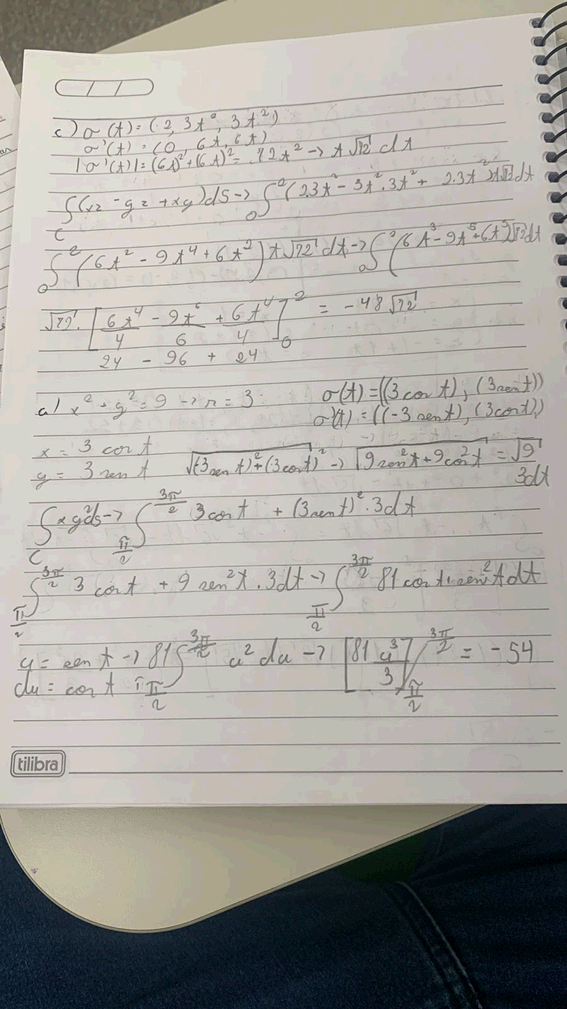 c) σ(t) = (2, 3t², 3t²)
σ'(t) = (0, 6t, 6t)
|σ'(t)| = (6t)² + (6t)² = 72t² → t√72 dt
∫c (xz - yz + xy) ds → ∫₀² (2.3t² - 3t².3t² + 2.3t²) t√72 dt
∫₀² (6t² - 9t⁴ + 6t²) t√72 dt → ∫₀² (6t³ - 9t⁵ + 6t³) √72 dt
√72 . [6t⁴/4 - 9t⁶/6 + 6t⁴/4]₀² = -48√72
24 - 96 + 24
a) x² + y² = 9 → r = 3 σ(t) = ((3 cos t), (3 sen t))
σ'(t) = ((-3 sen t), (3 cos t))
x = 3 cos t
y = 3 sen t √(-3 sen t)² + (3 cos t)² → √9 sen² t + 9 cos² t = √9
3dt
∫c xy² ds → ∫π/2 3π/2 3 cos t + (3 sen t)² . 3 dt
∫π/2 3π/2 3 cos t + 9 sen² t . 3 dt → ∫π/2 3π/2 81 cos t . sen² t dt
u = sen t → 81 ∫π/2 3π/2 u² du → [81 u³/3]π/2 3π/2 = -54
du = cos t
tilibra